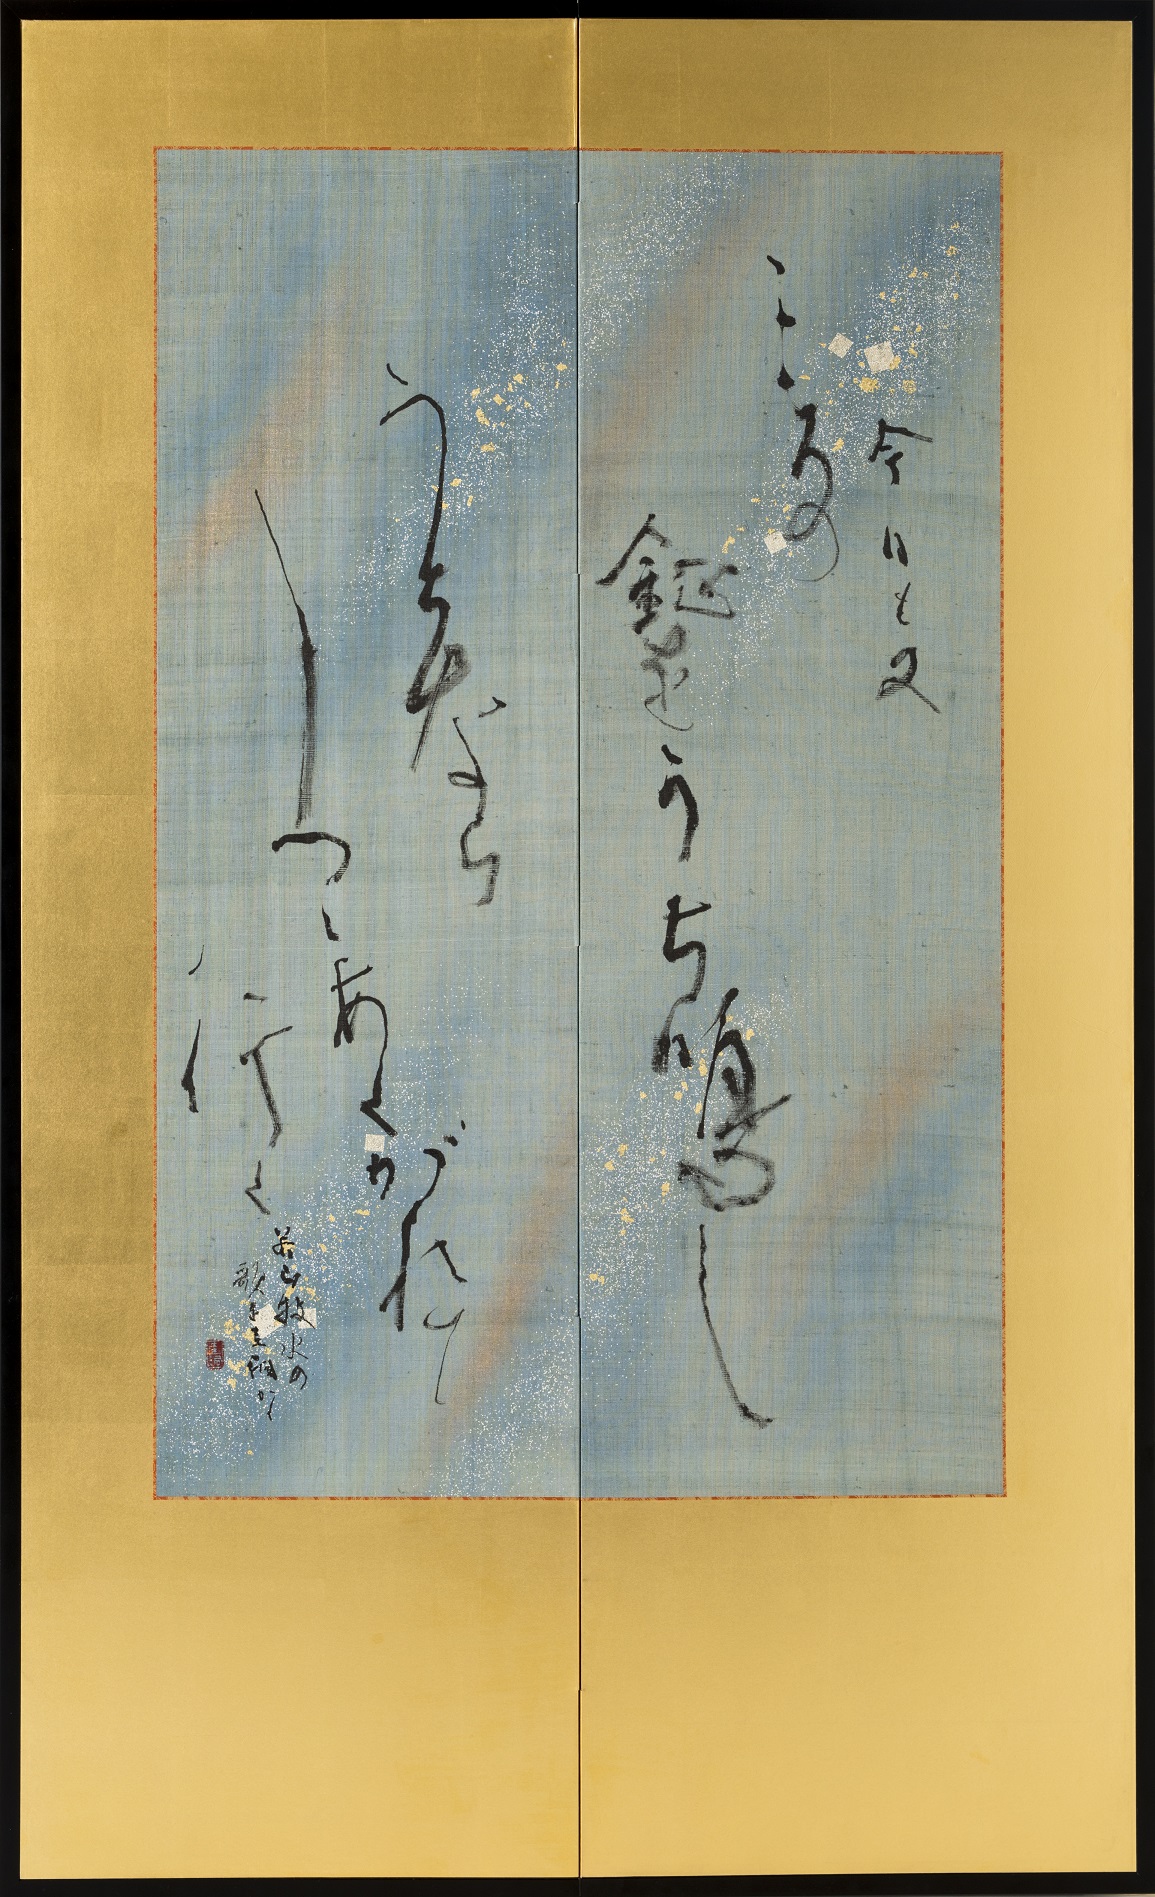 今日も又
こゝろの
鉦をうち鳴し
うちなら
しつゝあくがれ
行く
若山牧水の
歌